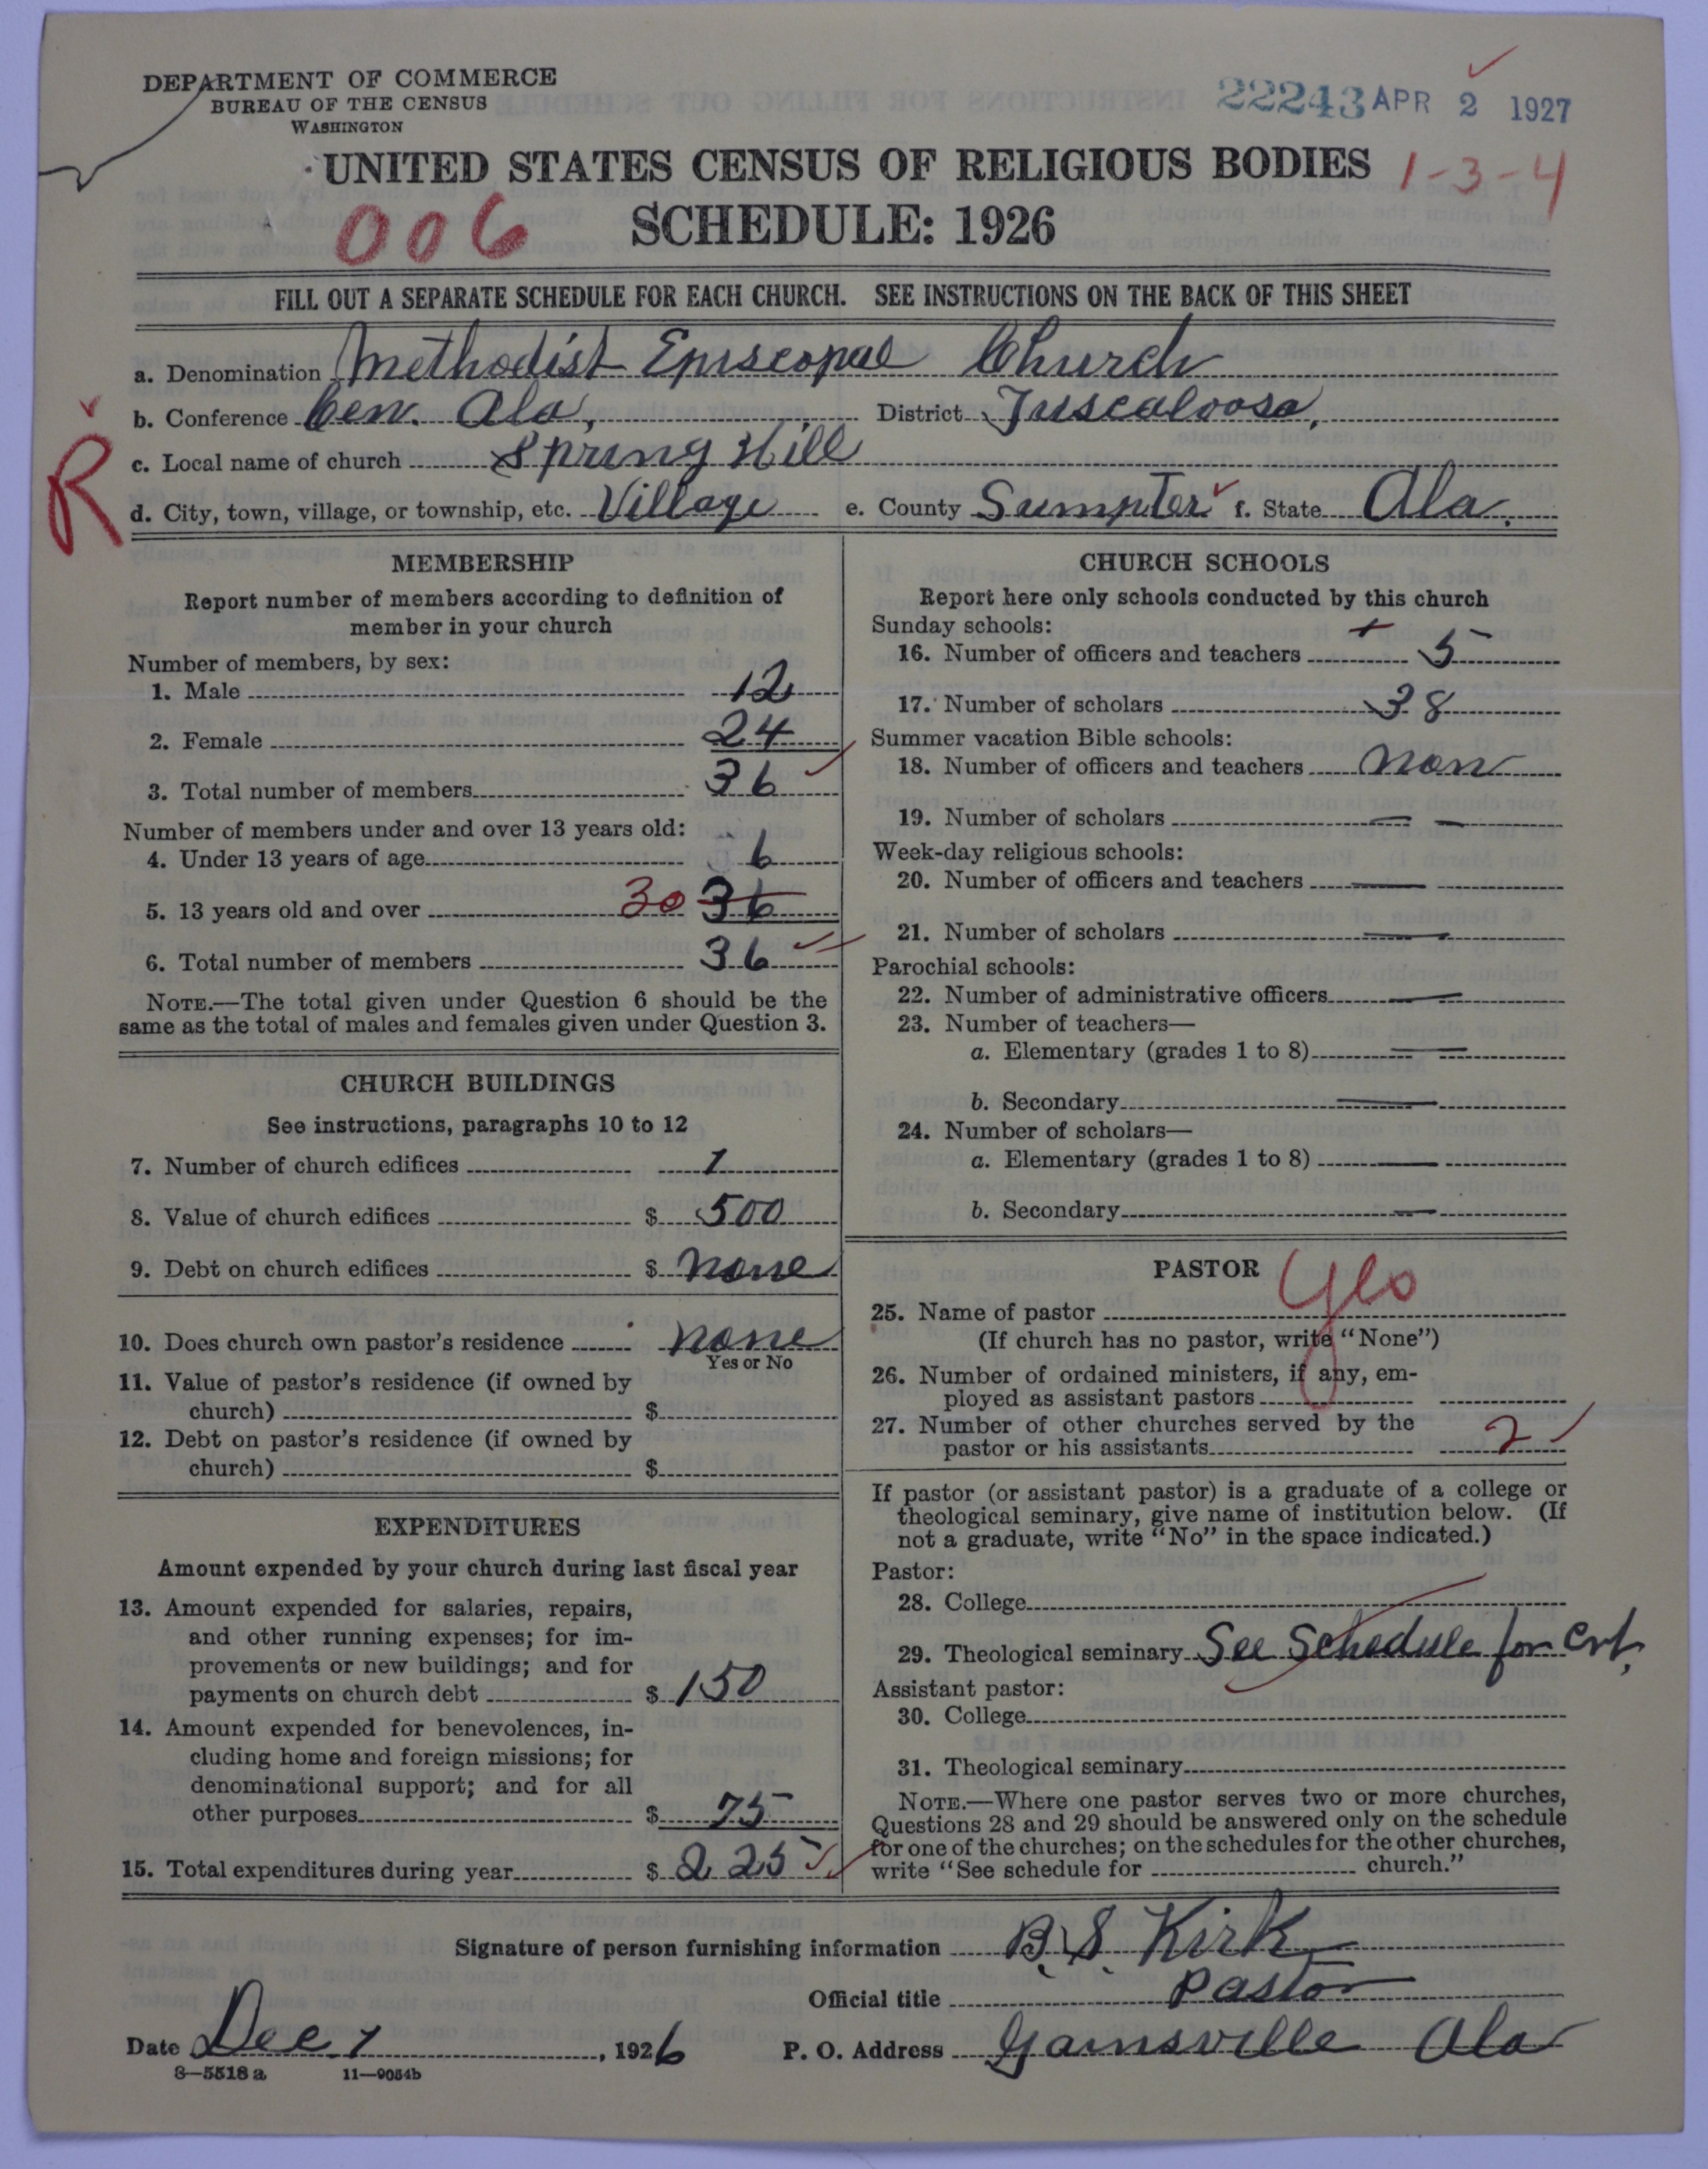 DEPARTMENT OF COMMERCE
BUREAU OF THE CENSUS
WASHINGTON
22243 APR 2 1927
UNITED STATES CENSUS OF RELIGIOUS BODIES
1-3-4
006
SCHEDULE: 1926
FILL OUT A SEPARATE SCHEDULE FOR EACH CHURCH. SEE INSTRUCTIONS ON THE BACK OF THIS SHEET
a. Denomination Methodist Episcopal Church
b. Conference Cen. Ala, District Tuscaloosa,
c. Local name of church Spring Hill
R
d. City, town, village, or township, etc. Village e. County Sumpter f. State Ala.
MEMBERSHIP
Report number of members according to definition of
member in your church
Number of members, by sex:
1. Male 12
2. Female 24
3. Total number of members 36
Number of members under and over 13 years old:
4. Under 13 years of age 6
5. 13 years old and over 30 36
6. Total number of members 36
NOTE.—The total given under Question 6 should be the
same as the total of males and females given under Question 3.
CHURCH BUILDINGS
See instructions, paragraphs 10 to 12
7. Number of church edifices 1
8. Value of church edifices $ 500
9. Debt on church edifices $ none
10. Does church own pastor's residence none
Yes or No
11. Value of pastor's residence (if owned by
church) $
12. Debt on pastor's residence (if owned by
church) $
EXPENDITURES
Amount expended by your church during last fiscal year
13. Amount expended for salaries, repairs,
and other running expenses; for im-
provements or new buildings; and for
payments on church debt $ 150
14. Amount expended for benevolences, in-
cluding home and foreign missions; for
denominational support; and for all
other purposes $ 75
15. Total expenditures during year $ 225
CHURCH SCHOOLS
Report here only schools conducted by this church
Sunday schools:
16. Number of officers and teachers 5
17. Number of scholars 38
Summer vacation Bible schools:
18. Number of officers and teachers non
19. Number of scholars — —
Week-day religious schools:
20. Number of officers and teachers —
21. Number of scholars —
Parochial schools:
22. Number of administrative officers —
23. Number of teachers—
a. Elementary (grades 1 to 8) —
b. Secondary —
24. Number of scholars—
a. Elementary (grades 1 to 8) —
b. Secondary —
PASTOR
yes
25. Name of pastor
(If church has no pastor, write "None")
26. Number of ordained ministers, if any, em-
ployed as assistant pastors
27. Number of other churches served by the
pastor or his assistants 2
If pastor (or assistant pastor) is a graduate of a college or
theological seminary, give name of institution below. (If
not a graduate, write "No" in the space indicated.)
Pastor:
28. College
29. Theological seminary See Schedule for
Assistant pastor:
30. College
31. Theological seminary
NOTE.—Where one pastor serves two or more churches,
Questions 28 and 29 should be answered only on the schedule
for one of the churches; on the schedules for the other churches,
write "See schedule for church."
Signature of person furnishing information B. S. Kirk
Official title Pastor
Date Dec 7, 1926 P. O. Address Gainsville Ala
8—5518 a 11—9054b